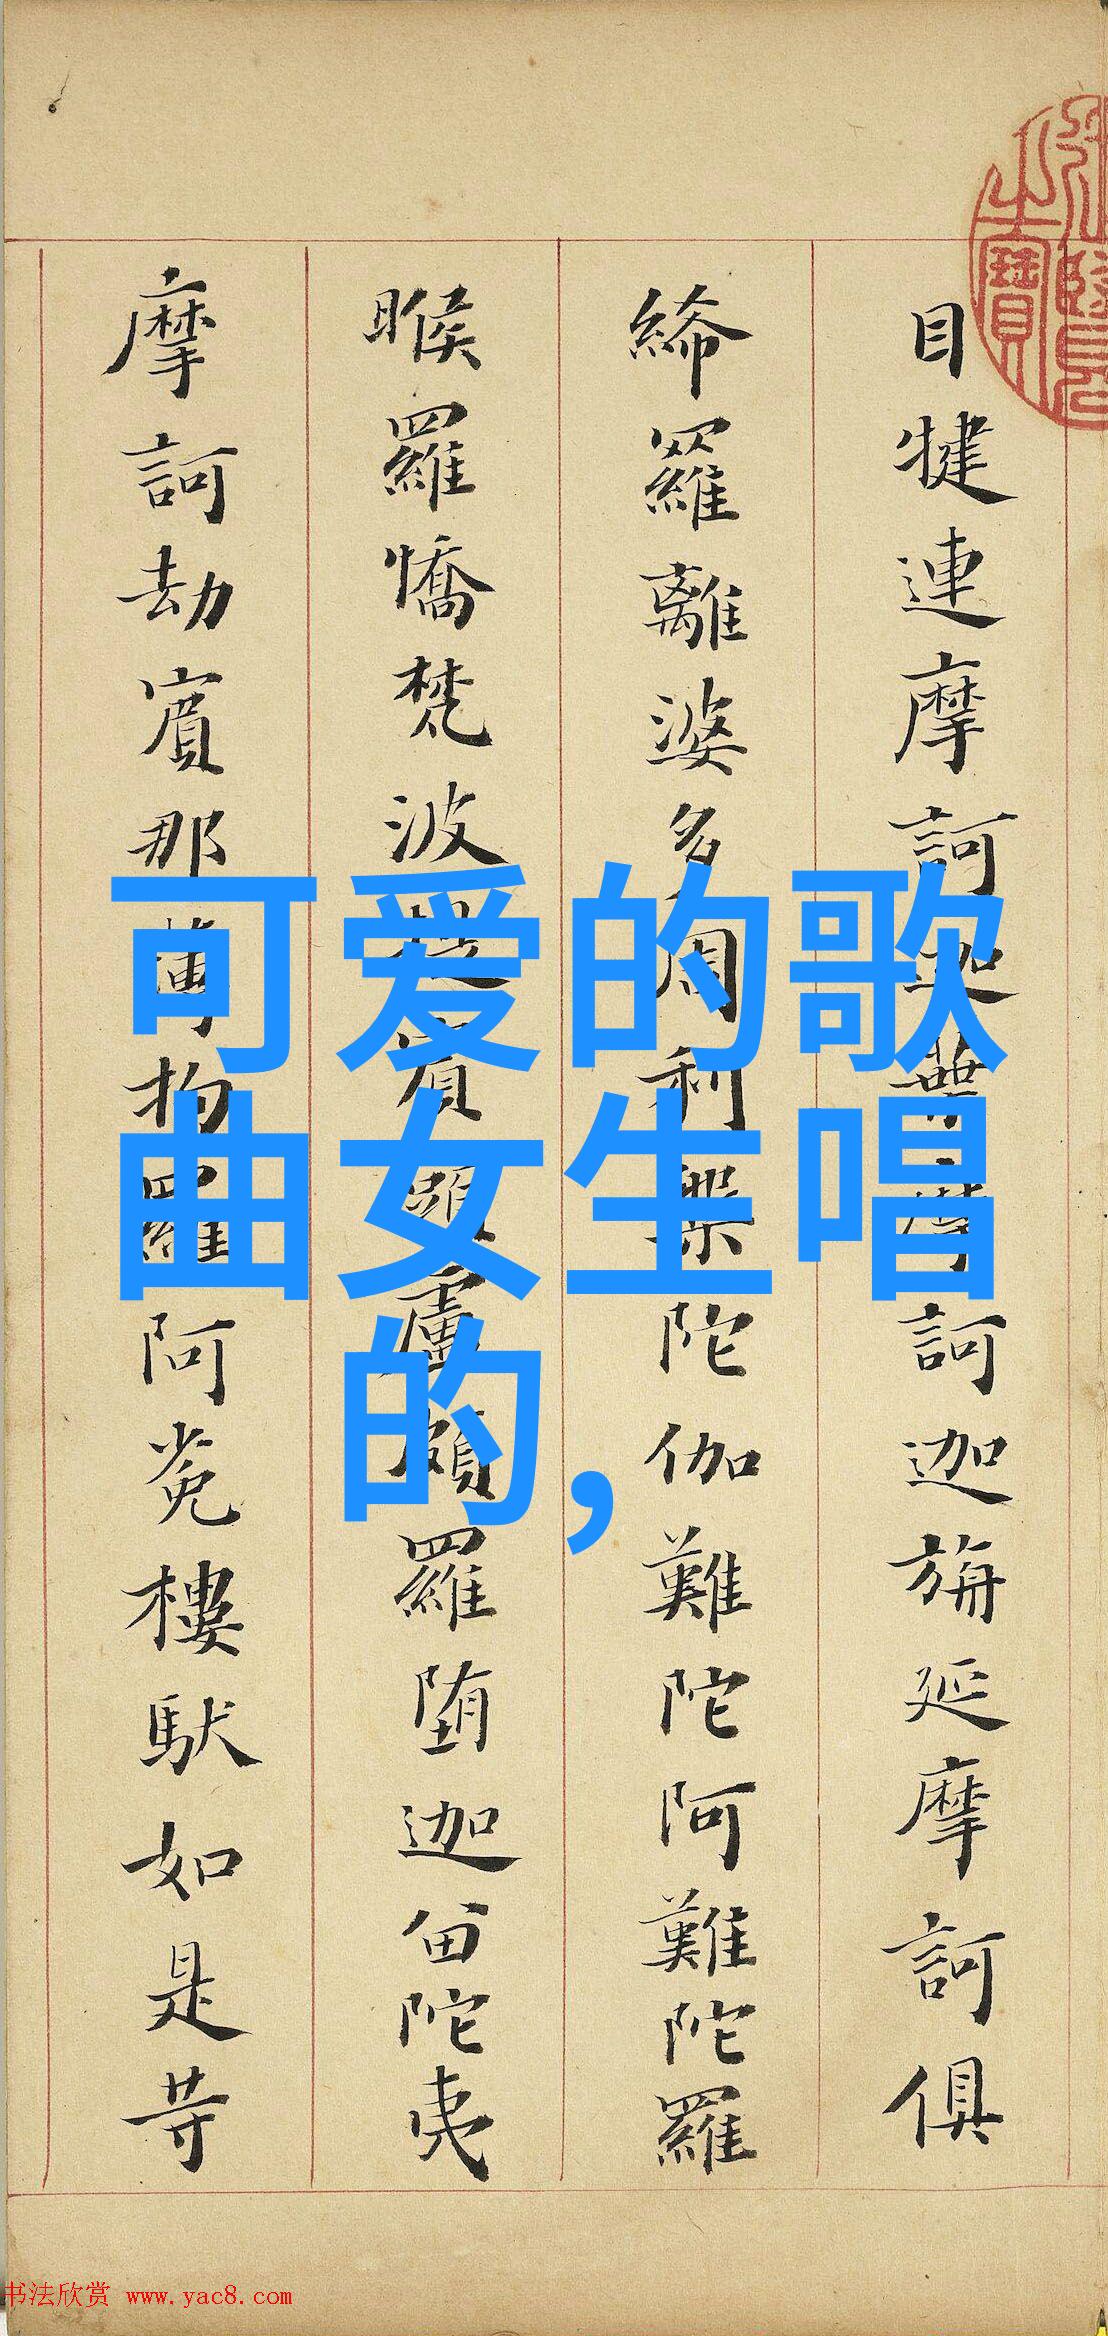 目犍連摩訶迦葉摩訶迦旃延摩訶俱
絺羅離婆多周利槃陀伽難陀阿難陀羅
睺羅憍梵波提賓頭盧頗羅堕迦留陀夷
摩訶劫賓那薄拘羅阿㝹樓馱如是等
可爱的歌
曲女生唱
的,
书法欣赏 www.yac8.com